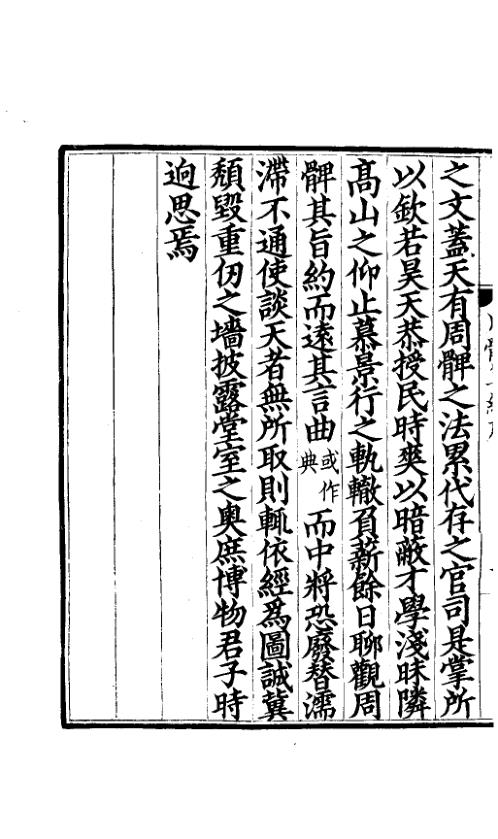 之文蓋天有周髀之法累代存之官司是掌所
以欽若昊天恭授民時爽以暗蔽才學淺昧隣
高山之仰止慕景行之軌轍負薪餘日聊觀周
髀其旨約而遠其言曲或作典而中將恐廢替濡
滯不通使談天者無所取則輒依經為圖誠冀
頽毀重仞之墻披露堂室之奥庶博物君子時
逈思焉